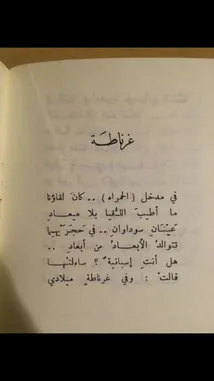 غرناطة
في مدخل (الحمراء) .. كان لقاؤنا
ما أطيب اللقيا بلا ميعاد
عينان سوداوان .. في حجريهما
تتوالد الأبعاد من أبعاد ..
هل أنت إسبانية ؟ ساءلتها
قالت : وفي غرناطة ميلادي